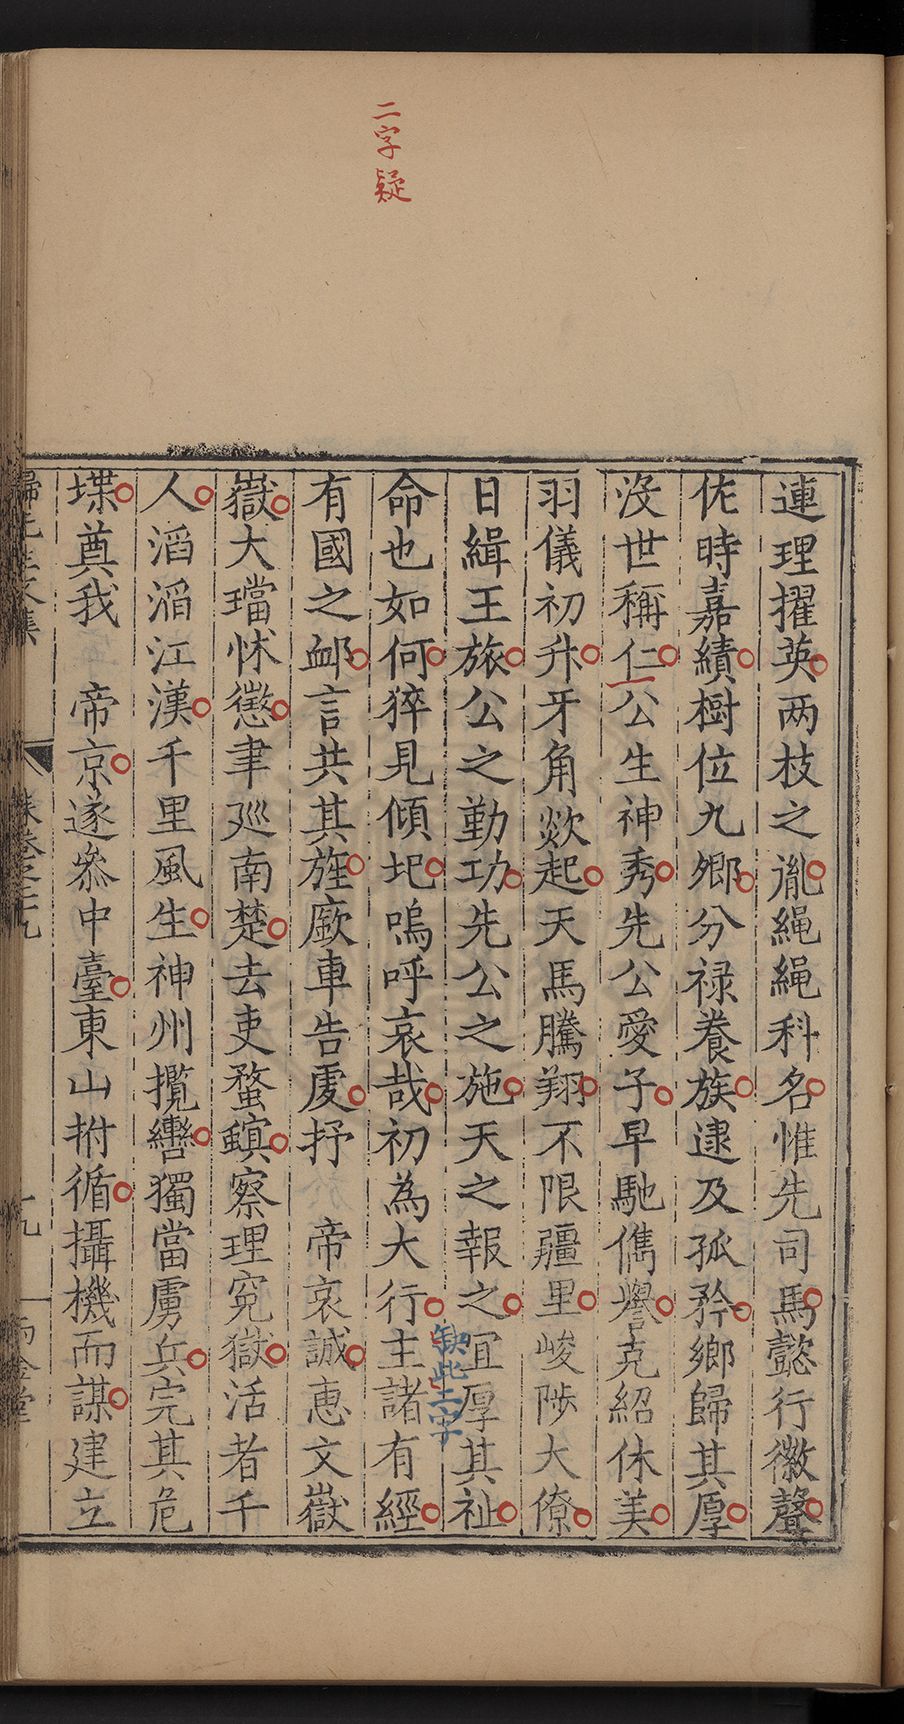 二字疑
連理擢英两枝之胤繩繩科名惟先司馬懿行徽聲
佐時嘉績樹位九卿分祿養族逮及孤矜鄉歸其厚
沒世稱仁公生神秀先公愛子早馳儁譽克紹休美
羽儀初升牙角欻起天馬騰翔不限疆里峻陟大僚
日緝王旅公之勤功先公之施天之報之宜厚其祉
命也如何猝見傾圯嗚呼哀哉初為大行主諸有經
缺此二字
有國之䘏言共其旌厥車告虔抒 帝哀誠惠文嶽
嶽大璫怵懲聿巡南楚去吏蝥螾察理寃獄活者千
人滔滔江漢千里風生神州攬轡獨當虜兵完其危
堞奠我 帝京遂叅中臺東山拊循攝機而謀建立